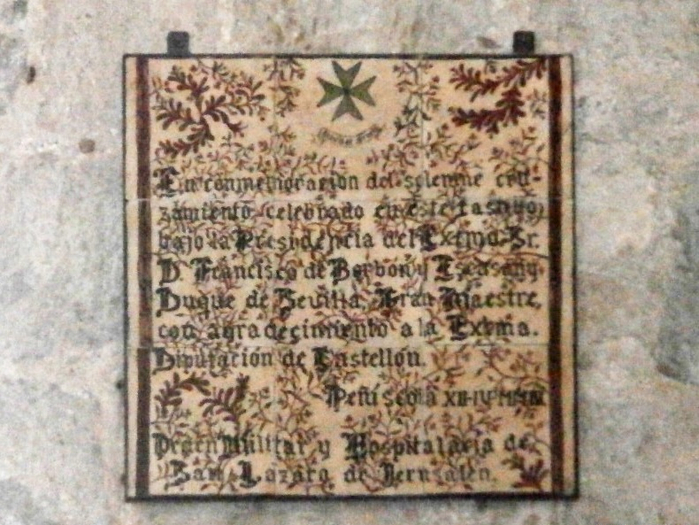 En conmemoración del solemne cru-
zamiento, celebrado en este Castillo,
bajo la Presidencia del Excmo. Sr.
D. Francisco de Borbon y Escasany
Duque de Sevilla, Gran Maestre,
con agradecimiento a la Excma.
Diputación de Castellón.
Peñiscola XII-IV-
Orden Militar y Hospitalaria de
San Lazaro de Jerusalén.